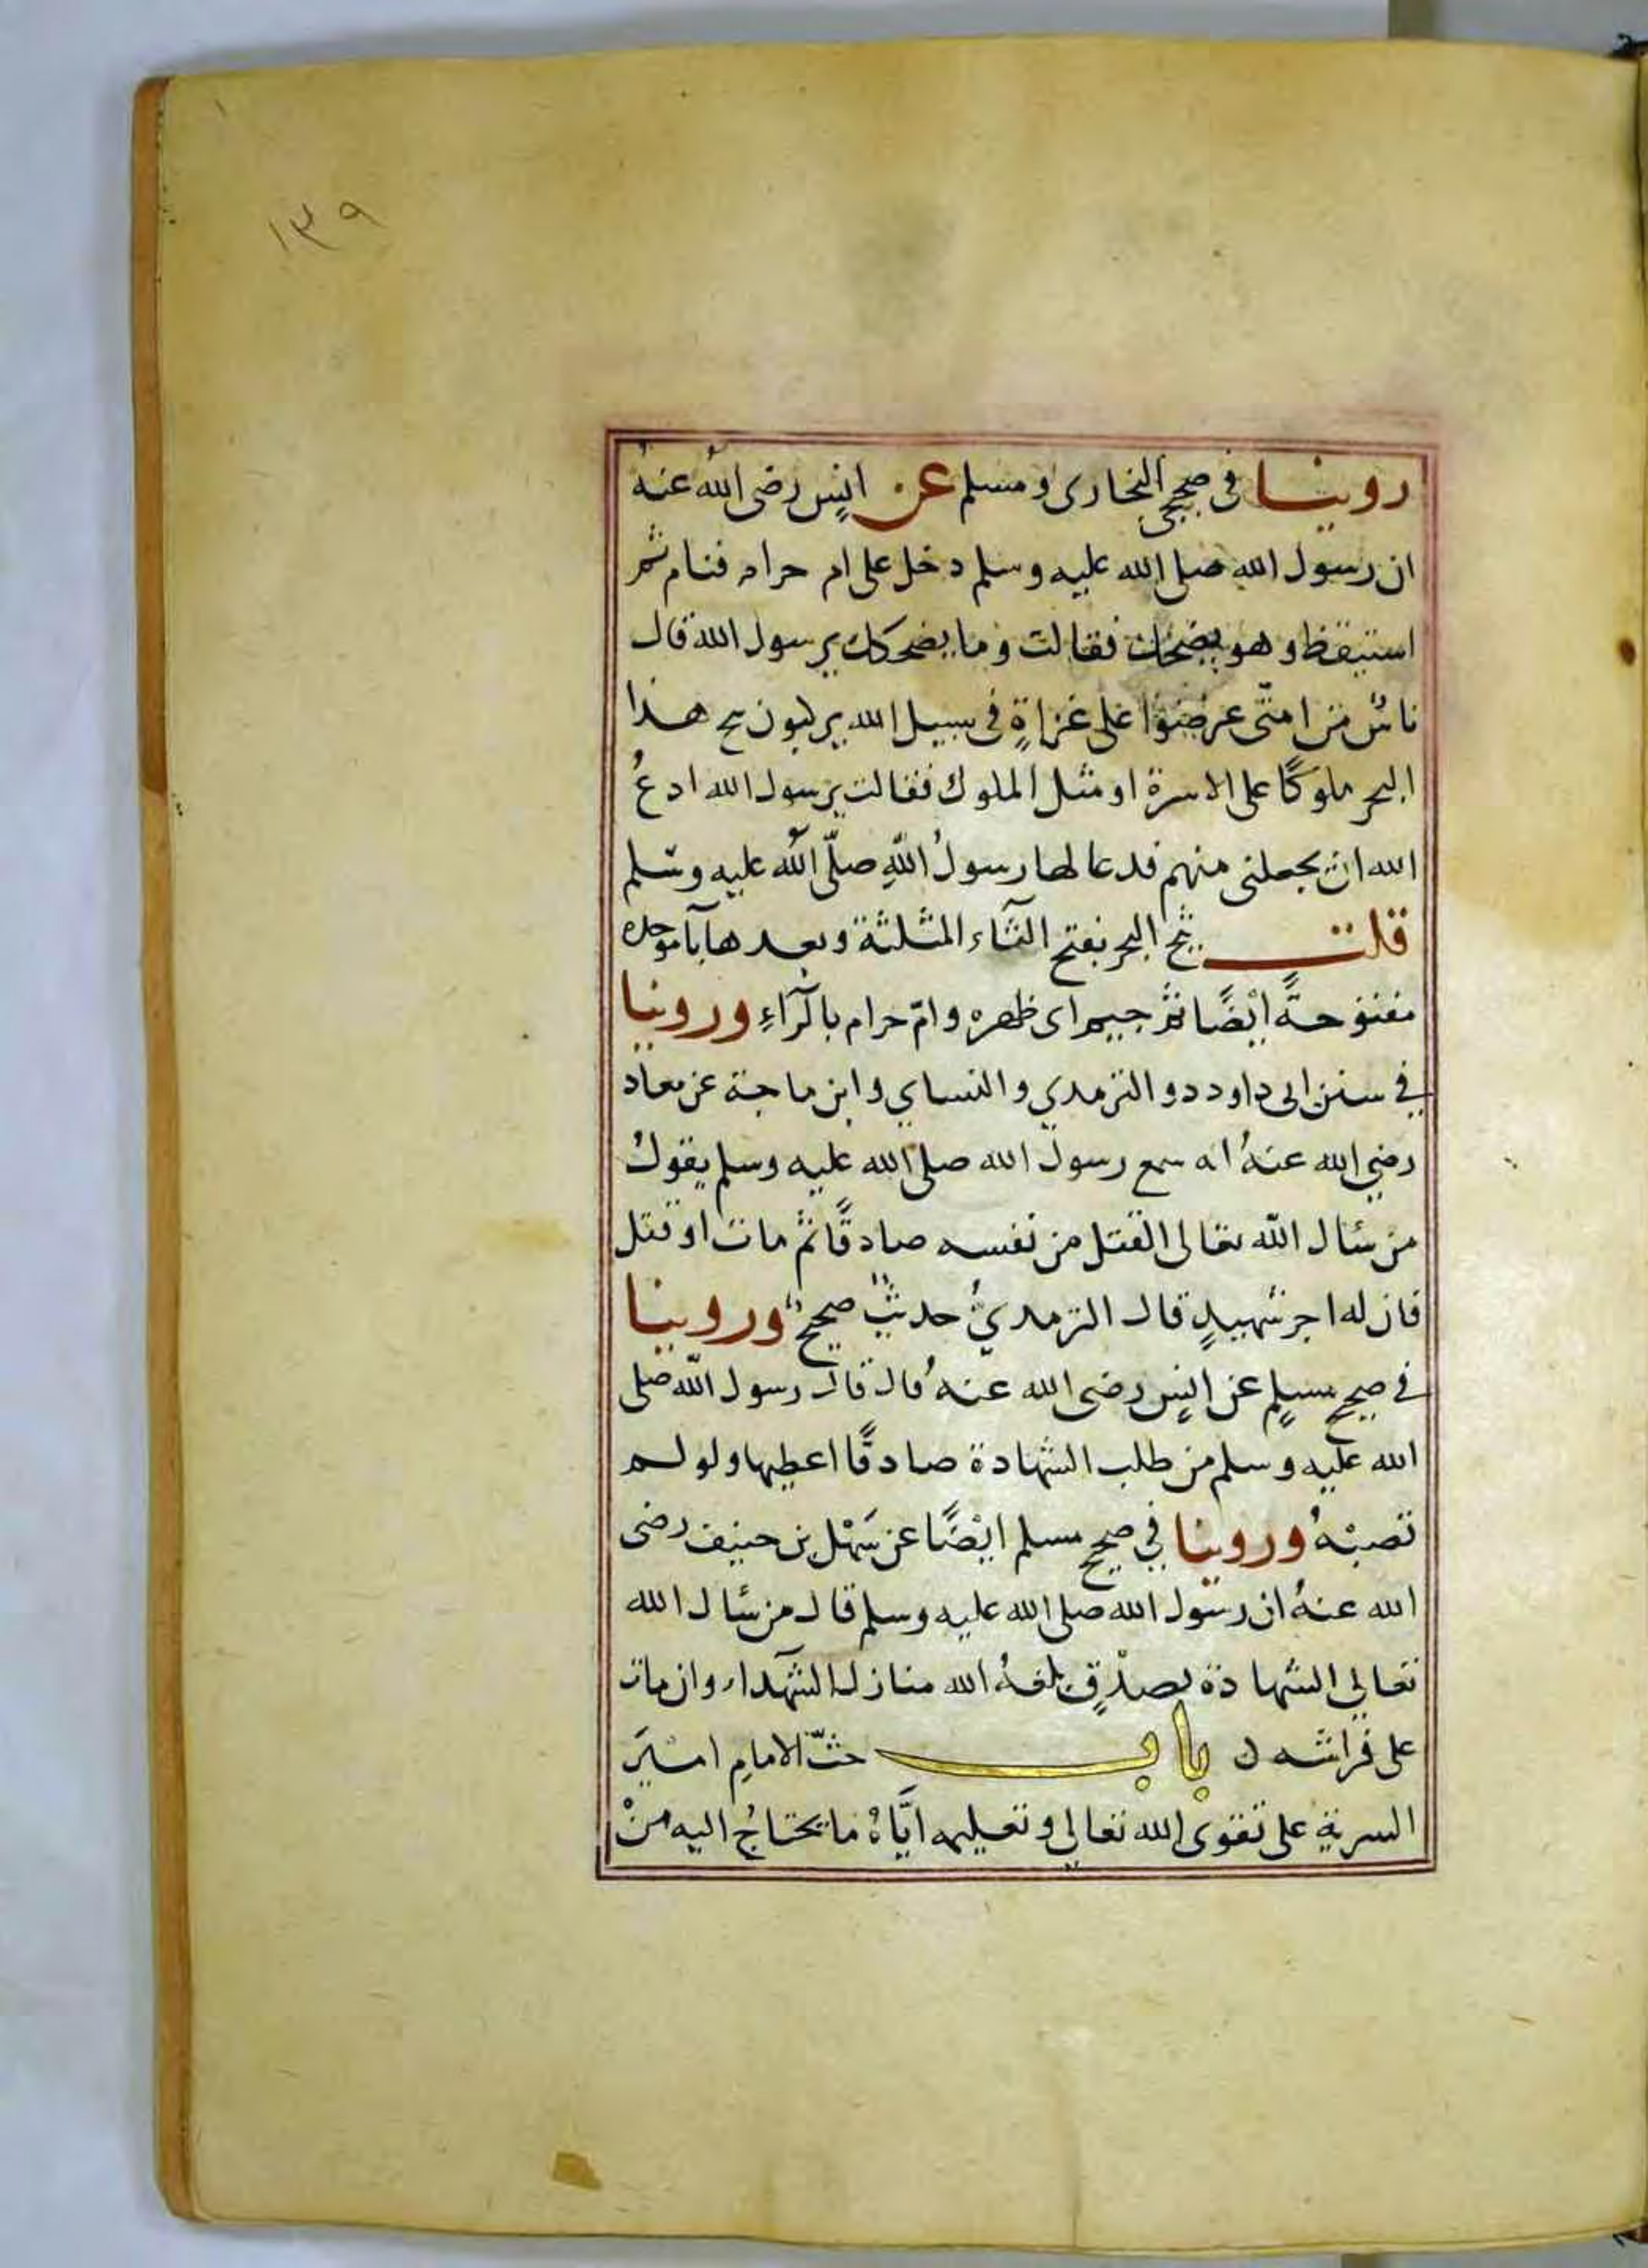 ١٣٩
روينا في صحيحي البخارى ومسلم عن انس رضى الله عنه
ان رسول الله صلى الله عليه وسلم دخل على ام حرام فنام ثم
استيقظ وهو يضحك فقالت وما يضحكك يرسول الله قال
ناس من امتى عرضوا على غزاة في سبيل الله يركبون ثبج هذا
البحر ملوكا على الاسرة او مثل الملوك فقالت يرسول الله ادع
الله ان يجعلنى منهم فدعا لها رسول الله صلى الله عليه وسلم
قلت ثبج البحر بفتح الثاء المثلثة وبعدها باء موحدة
مفتوحة ايضا ثم جيم اى ظهره وام حرام بالراء وروينا
في سنن ابى داود والترمدي والنساي وابن ماجة عن معاذ
رضي الله عنه انه سمع رسول الله صلى الله عليه وسلم يقول
من سئال الله تعالى القتل من نفسه صادقا ثم مات او قتل
فان له اجر شهيد قال الترمدي حديث صحيح وروينا
في صحيح مسلم عن انس رضى الله عنه قال قال رسول الله صلى
الله عليه وسلم من طلب الشهادة صادقا اعطيها ولو لم
تصبه وروينا في صحيح مسلم ايضا عن سهل بن حنيف رضى
الله عنه ان رسول الله صلى الله عليه وسلم قال من سئال الله
تعالي الشهادة بصدق بلغه الله منازل الشهداء وان مات
على فراشه باب حث الامام امير
السرية على تقوى الله تعالي وتعليمه اياه ما يحتاج اليه من